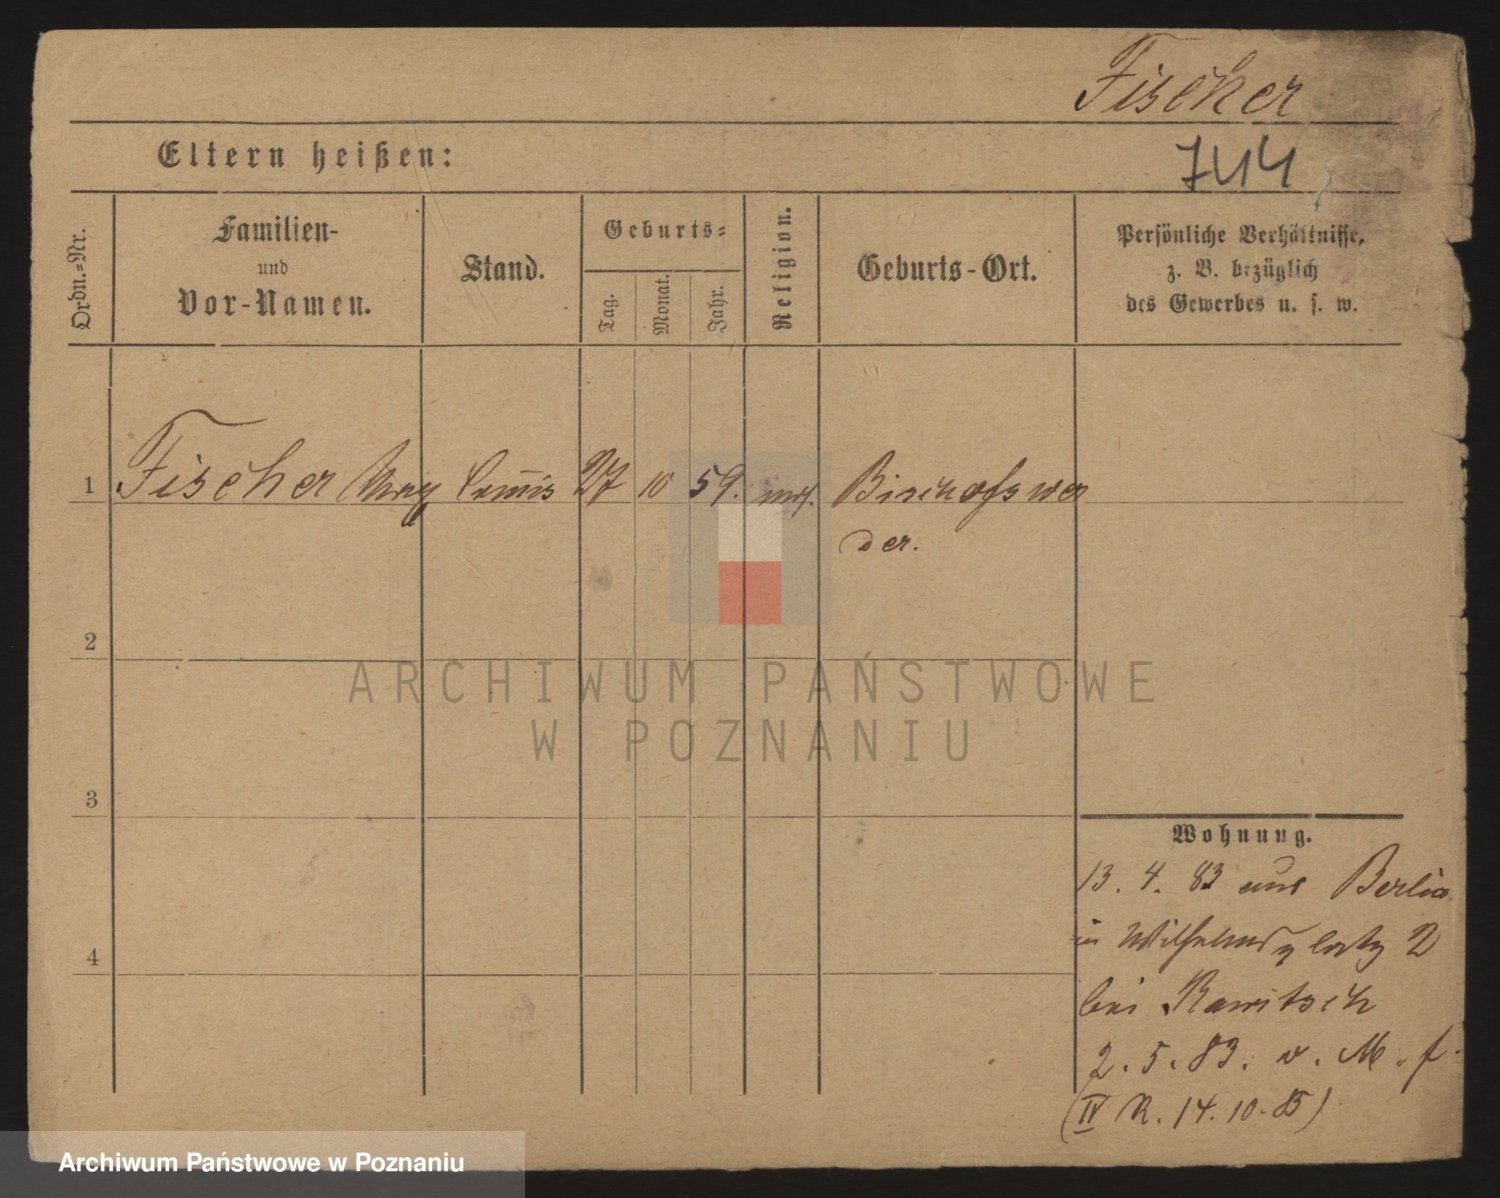 Fischer
Eltern heißen:
744
Ordn.=Nr.
Familien-
und
Vor-Namen.
Stand.
Geburts=
Tag.
Monat.
Jahr.
Religion.
Geburts-Ort.
Persönliche Verhältnisse,
z. B. bezüglich
des Gewerbes u. s. w.
1 Fischer Max Commis 27 10 59. mos. Bischofswer
der.
2
3
4
Wohnung.
13. 4. 83 aus Berlin
in Wilhelmsplatz 2
bei Rawitsch
2. 5. 83. v. M. f.
(IV R. 14. 10. 85)
ARCHIWUM PAŃSTWOWE
W POZNANIU
Archiwum Państwowe w Poznaniu